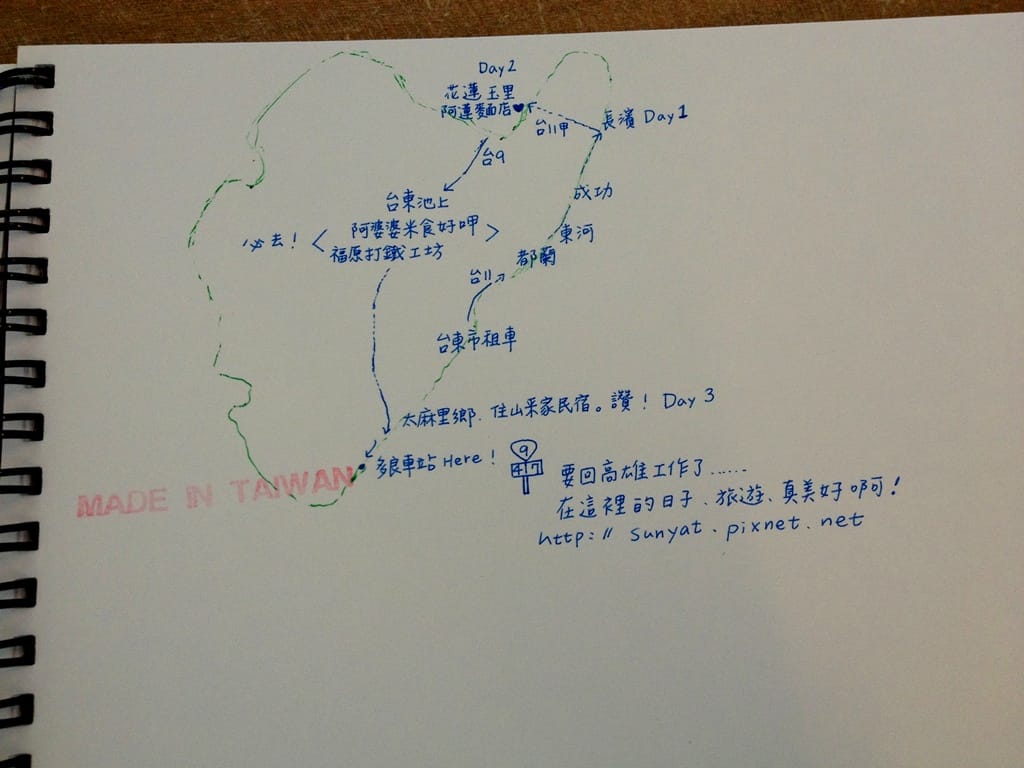 Day2
花蓮玉里
阿蓮麵店♥
台11甲
長濱 Day1
台9
成功
台東池上
阿婆婆米食好呷
必去!
福原打鐵工坊
東河
都蘭
台11
台東市租車
太麻里鄉、住山采家民宿。讚! Day 3
多良車站 Here!
9
417
要回高雄工作了......
在這裡的日子、旅遊、真美好啊!
http:// sunyat.pixnet.net
MADE IN TAIWAN